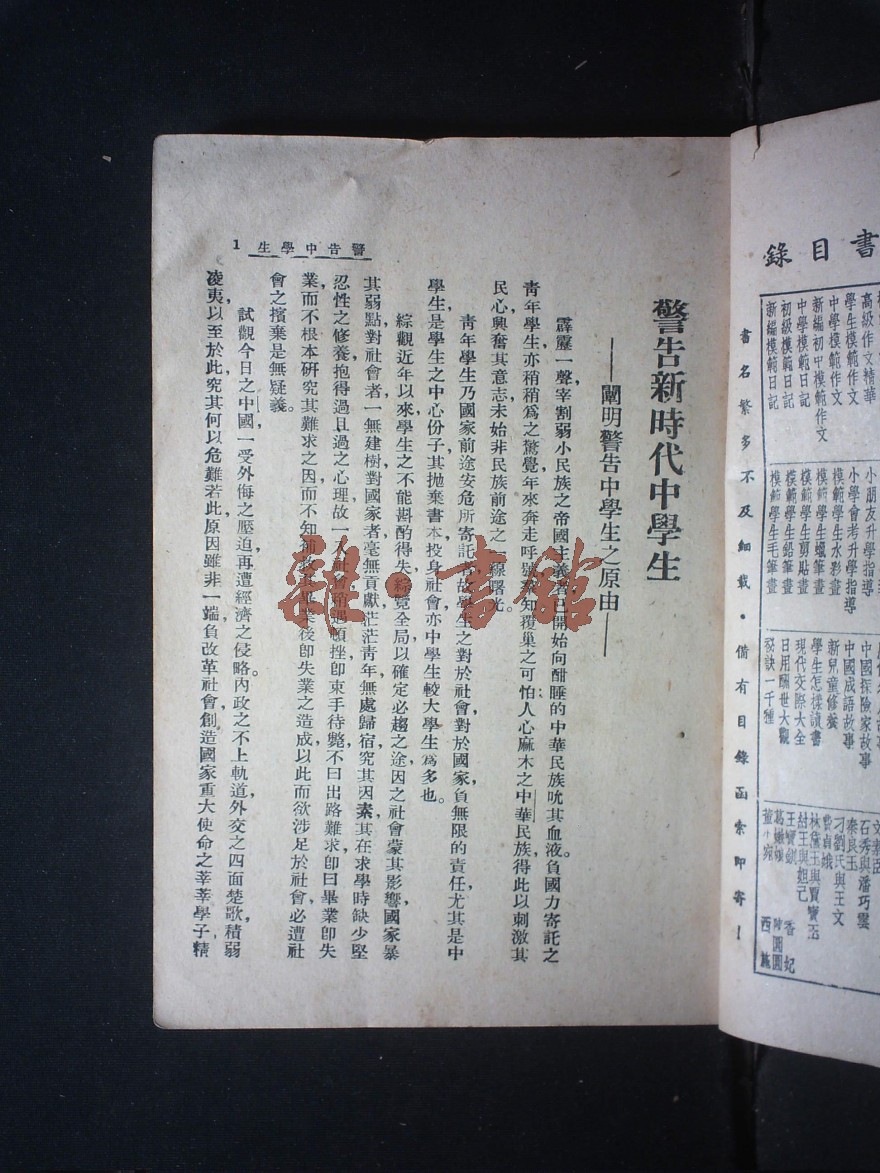 書目錄
高級作文精華
學生模範作文
中學模範作文
新編初中模範作文
中學模範日記
初級模範日記
新編模範日記
小朋友升學指導
小學會考升學指導
模範學生水彩畫
模範學生蠟筆畫
模範學生剪貼畫
模範學生鉛筆畫
模範學生毛筆畫
中國探險家故事
中國成語故事
新兒童修養
學生怎樣讀書
現代交際大全
日用酬世大觀
秘訣一千種
石秀與潘巧雲
秦良玉
刁劉氏與王文
費貞娥
林黛玉與賈寶玉
紂王與妲己
王寶釧 香妃
葛嫩娘 陳圓圓
董小宛 西施
書名繁多不及細載・備有目錄函索即寄!
警告中學生 1
警告新時代中學生
——闡明警告中學生之原由——
霹靂一聲,宰割弱小民族之帝國主義者已開始向酣睡的中華民族吮其血液。負國力寄託之
青年學生亦稍稍為之驚覺,年來奔走呼號,知覆巢之可怕,人心麻木之中華民族得此以刺激其
民心,興奮其意志,未始非民族前途之一線曙光。
青年學生乃國家前途安危所寄託者,故學生之對於社會,對於國家,負無限的責任,尤其是中
學生是學生之中心份子,其拋棄書本投身社會,亦中學生較大學生為多也。
綜觀近年以來,學生之不能斟酌得失,綜覽全局,以確定必趨之途,因之社會蒙其影響,國家暴
其弱點,對社會者一無建樹,對國家者毫無貢獻,茫茫青年,無處歸宿,究其因素,其在求學時缺少堅
忍性之修養,抱得過且過之心理,故一入社會,稍遇頓挫,即束手待斃,不曰出路難求,即曰畢業即失
業,而不根本研究其難求之因,而不知補救其畢業後即失業之造成,以此而欲涉足於社會,必遭社
會之擯棄,是無疑義。
試觀今日之中國,一受外侮之壓迫,再遭經濟之侵略。內政之不上軌道,外交之四面楚歌,積弱
凌夷,以至於此,究其何以危難若此,原因雖非一端,負改革社會創造國家重大使命之莘莘學子,精
雜・書館